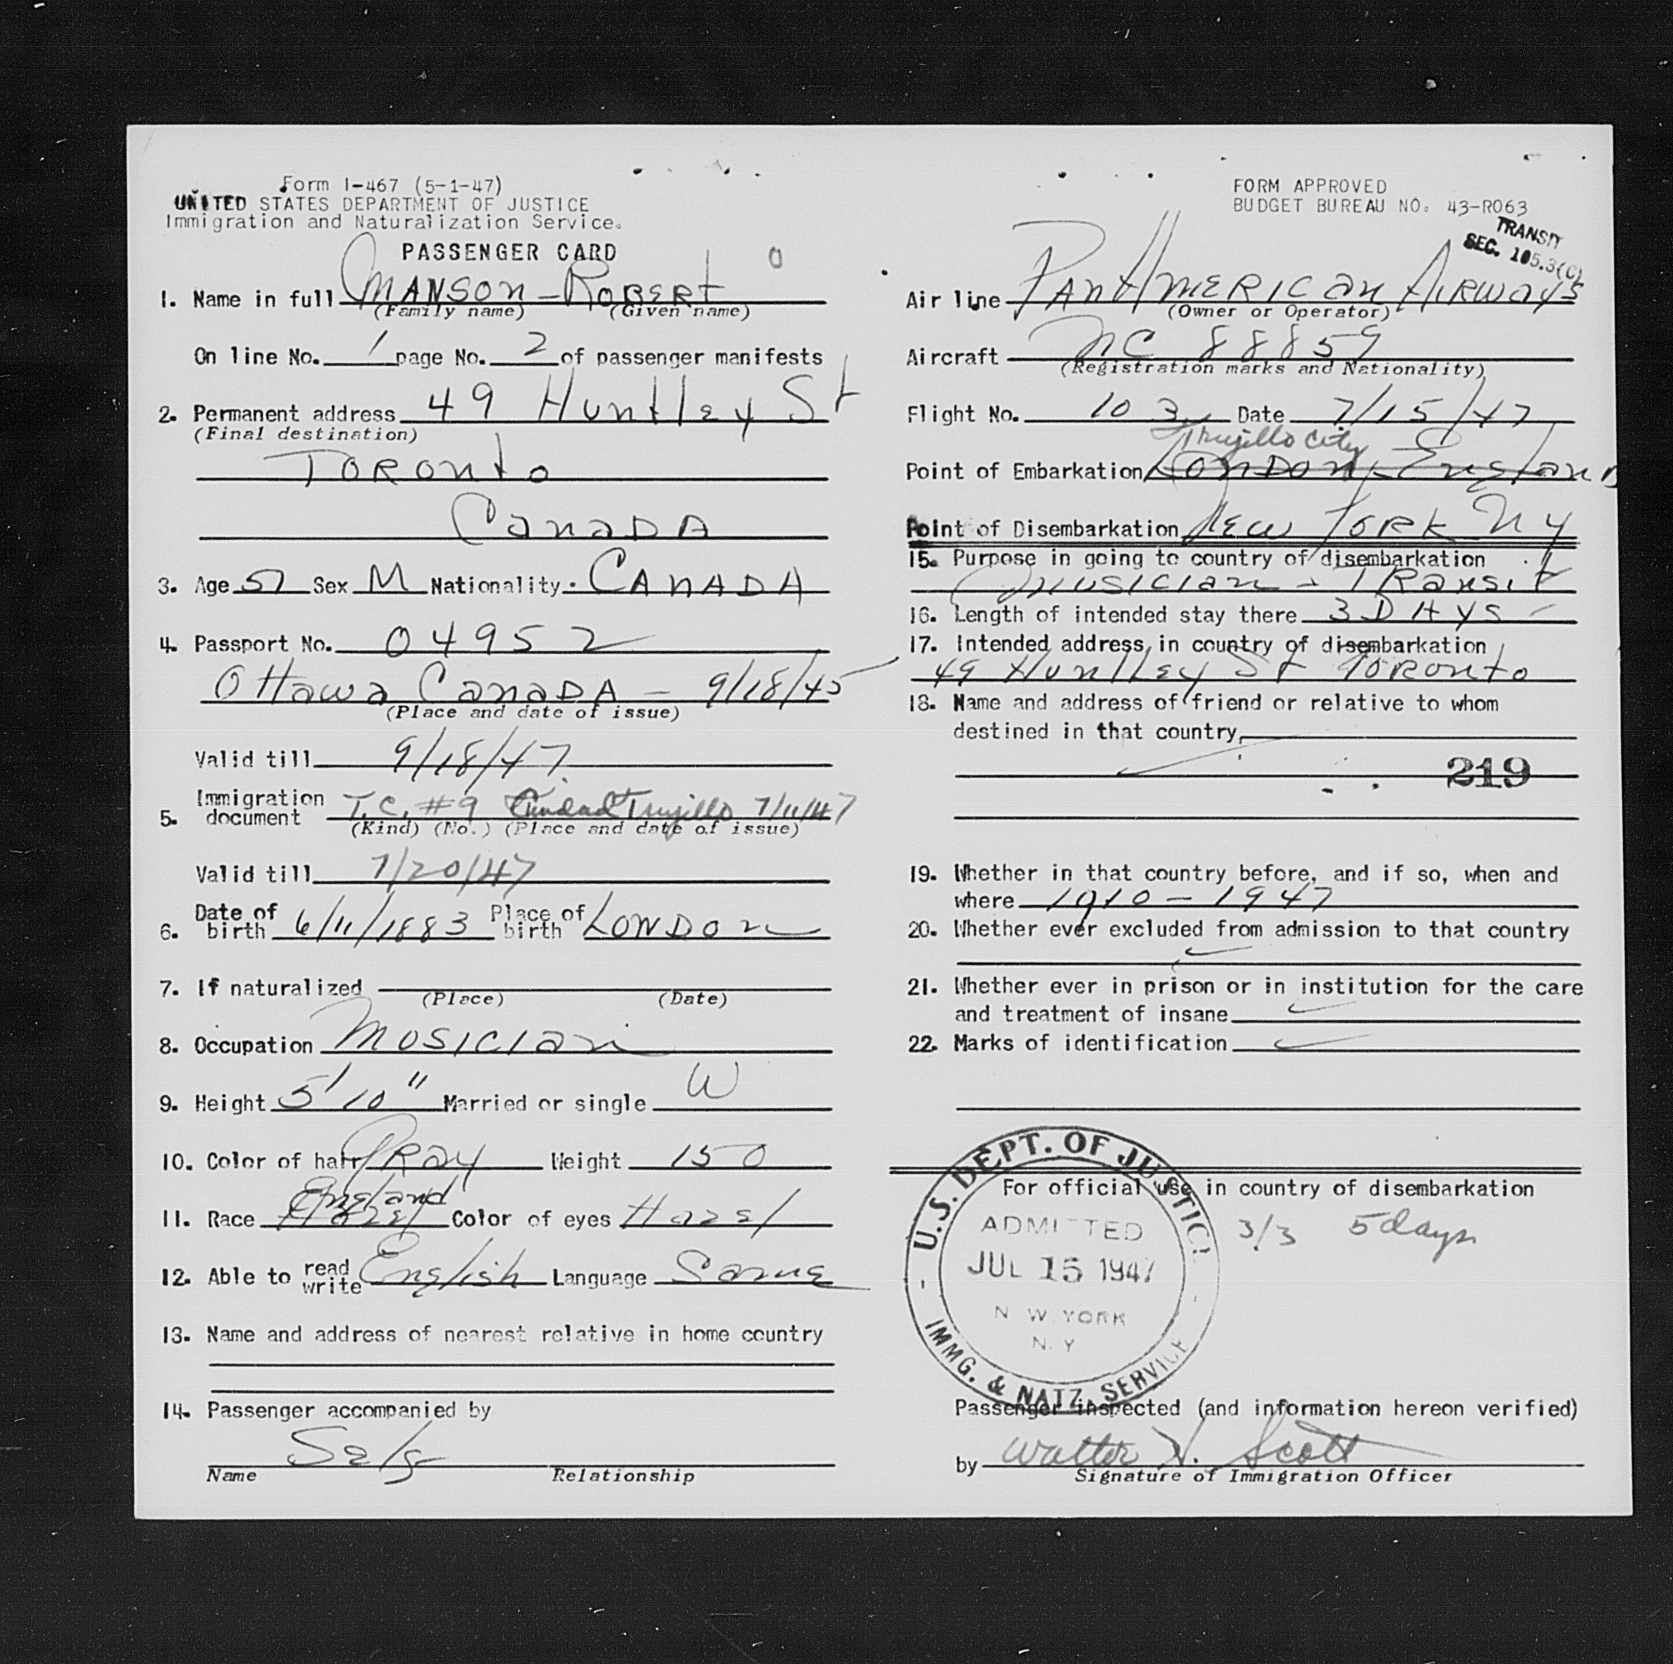 Form I-467 (5-1-47)
UNITED STATES DEPARTMENT OF JUSTICE
Immigration and Naturalization Service.
PASSENGER CARD
0
1. Name in full MANSON - ROBERT
(Family name) (Given name)
On line No. 1 page No. 2 of passenger manifests
2. Permanent address 49 Huntley St
(Final destination)
TORONTO
CANADA
3. Age 57 Sex M Nationality CANADA
4. Passport No. 04952
Ottawa CANADA - 9/18/45
(Place and date of issue)
Valid till 9/18/47
5. Immigration document T.C. #9 Ciudad Trujillo 7/11/47
(Kind) (No.) (Place and date of issue)
Valid till 7/20/47
6. Date of birth 6/11/1883 Place of birth LONDON
7. If naturalized
(Place) (Date)
8. Occupation MUSICIAN
9. Height 5'10" Married or single W
10. Color of hair GRAY Weight 150
11. Race England Hazel Color of eyes Hazel
12. Able to read write English Language Same
13. Name and address of nearest relative in home country
14. Passenger accompanied by
Self
Name Relationship
FORM APPROVED
BUDGET BUREAU NO. 43-R063
TRANSIT
SEC. 105.3(C)
Air line PAN AMERICAN AIRWAYS
(Owner or Operator)
Aircraft NC 88859
(Registration marks and Nationality)
Flight No. 103 Date 7/15/47
Trujillo City
Point of Embarkation LONDON - ENGLAND
Point of Disembarkation NEW YORK NY
15. Purpose in going to country of disembarkation
MUSICIAN - TRANSIT
16. Length of intended stay there 3 DAYS
17. Intended address in country of disembarkation
49 Huntley St TORONTO
18. Name and address of friend or relative to whom
destined in that country,
219
19. Whether in that country before, and if so, when and
where 1910 - 1947
20. Whether ever excluded from admission to that country
21. Whether ever in prison or in institution for the care
and treatment of insane
22. Marks of identification
For official use in country of disembarkation
3/3 5 days
U.S. DEPT. OF JUSTICE
ADMITTED
JUL 15 1947
NEW YORK
N.Y
IMMG. & NATZ. SERVICE
Passenger inspected (and information hereon verified)
by Walter H. Scott
Signature of Immigration Officer